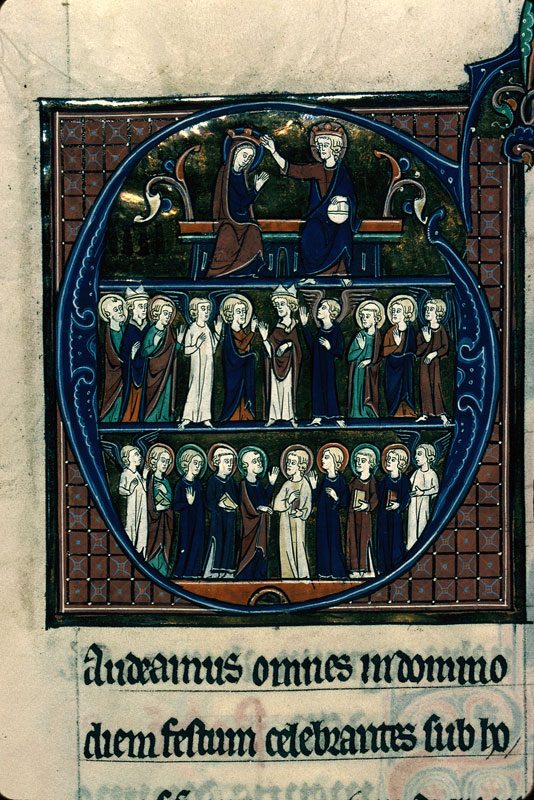 Audeamus omnes in domino
diem festum celebrantes sub ho